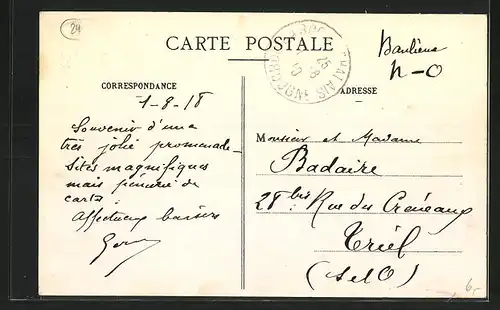 24
CARTE POSTALE
Banlieue
N-O
CORRESPONDANCE
ADRESSE
1-8-18
Souvenir d'une
très jolie promenade
Sites magnifiques
mais pénurie de
carte.
Affectueux baisers
Monsieur et Madame
Badaire
28 bis Rue des Créneaux
Triel
(S et O)